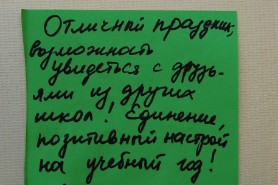 Отличный праздник,
возможность
увидеться с друзь-
ями из других
школ. Единение,
позитивный настрой
на учебный год!